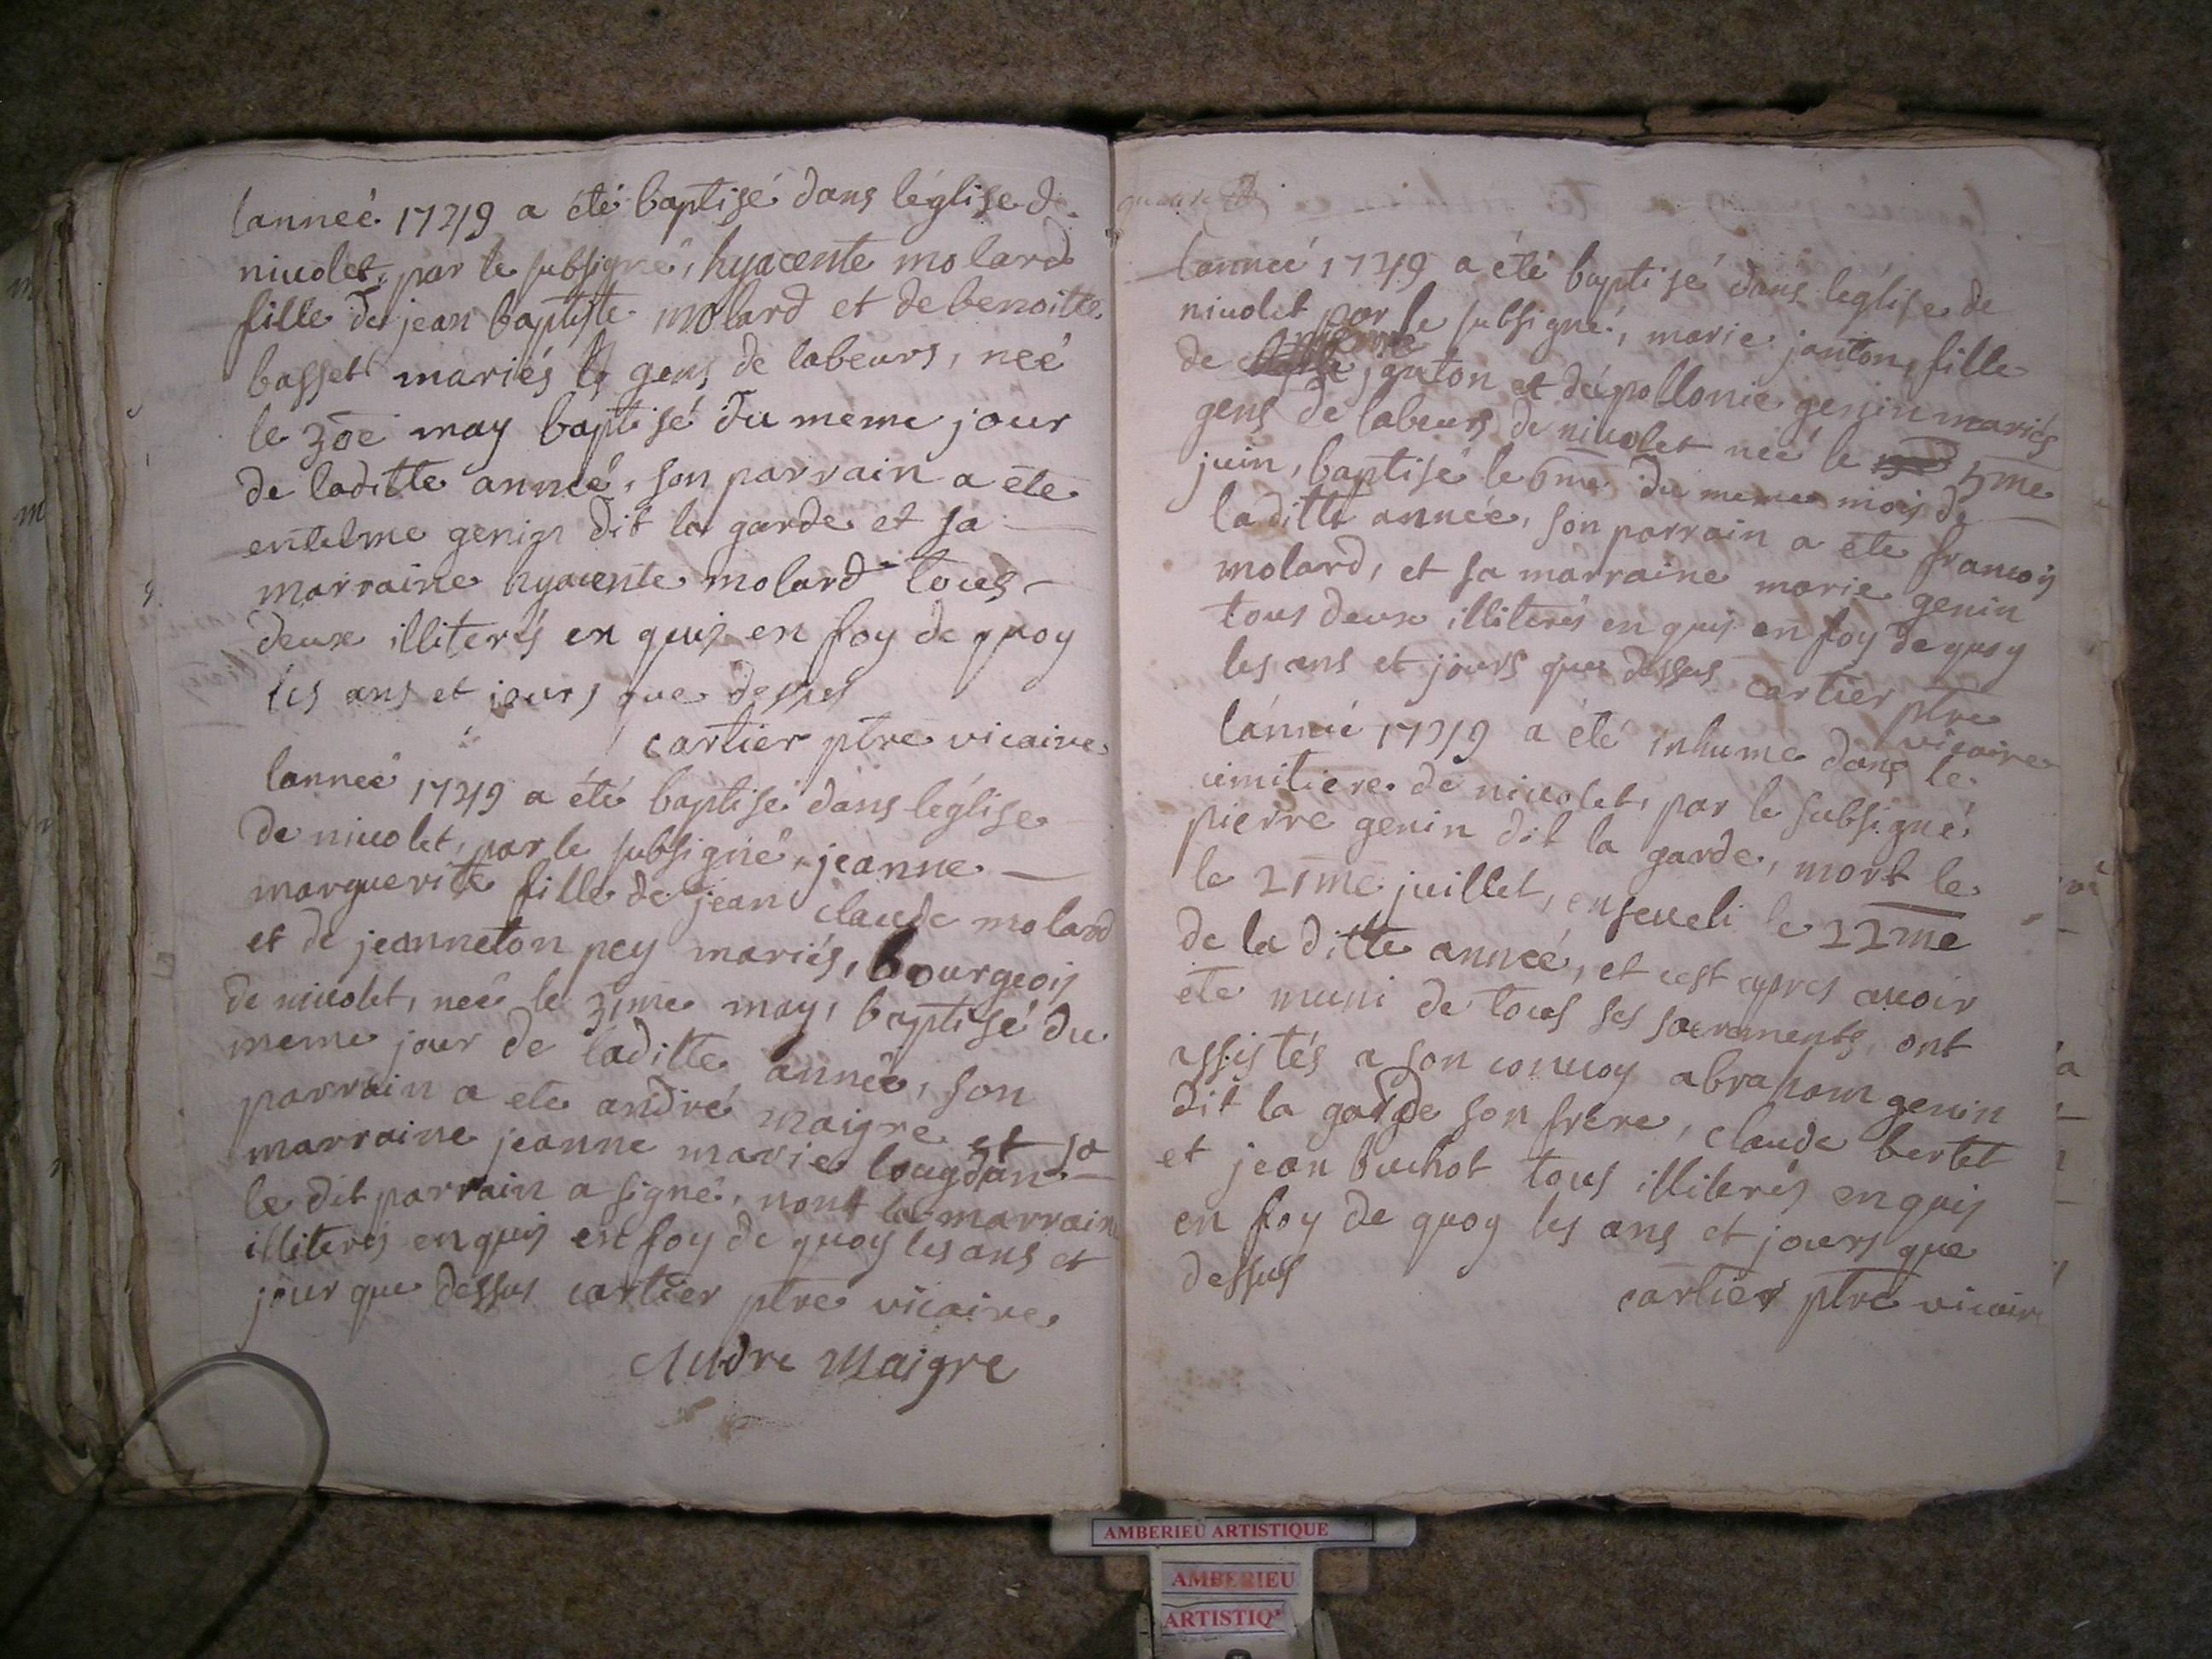 lanneé 1749 a été baptisé dans léglise d
nivolet, par le subsigné, hyacente molard
fille de jean baptiste molard et de benoitte
basset mariés gens de labeurs, neé
le 30e may baptisé du meme jour
de laditte anneé, son parrain a ete
entelme genin dit la garde et sa
marraine hyacente molard tous
deux illiterés en quis en foy de quoy
les ans et jours que dessus
cartier ptre vicaire
lanneé 1749 a été baptisé dans léglise
de nivolet, par le subsigné, jeanne
marguerite fille de jean claude molard
et de jeanneton pey mariés, bourgeois
de nivolet, neé le 31me may, baptisé du
meme jour de laditte anneé, son
parrain a ete andré maigre et sa
marraine jeanne marie lougdan
le dit parrain a signé, nont la marrain
illiterés enquis en foy de quoy les ans et
jour que dessus cartier ptre vicaire
Andre Maigre
lanneé 1749 a été baptisé dans léglise de
nivolet par le subsigné, marie janton, fille
de janton et dépollonie genin mariés
gens de labeurs de nivolet neé le 5me
juin, baptisé le 6me du meme mois de
laditte anneé, son parrain a ete francois
molard, et sa marraine marie genin
tous deux illiterés en quis en foy de quoy
les ans et jours que dessus cartier ptre
vicaire
lanneé 1749 a été inhumé dans le
cimitiere de nivolet, par le subsigné
pierre genin dit la garde, mort le
le 21me juillet, enseveli le 22me
de la ditte anneé, et cest apres avoir
ete muni de tous ses sacrements, ont
assistés a son convoy abraham genin
dit la garde son frere, claude bertet
et jean buchot tous illiterés enquis
en foy de quoy les ans et jours que
dessus
cartier ptre vicair
AMBERIEU ARTISTIQUE
AMBERIEU
ARTISTIQ'